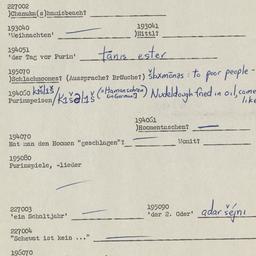 227002
)Chanuke(s)chmuisbeach?
193040 193041
'Weihnachten' )Nittl?
194051
'der Tag vor Purim' tānis ester
195070
)Schlachmoones? (Aussprache? Bräuche?) šlaxmōnas : to poor people -
194060
Purimspeisen / (=Hamantaschen in German) Nudeldough fried in oil, come like
194061
)Hoomentaschen?
194070
Hat man den Hooman "geschlagen"? Womit?
195080
Purimspiele, -lieder
227003 195090
'ein Schaltjahr' 'der 2. Oder' adar šejni
227004
"Schewet ist kein ..."
196070